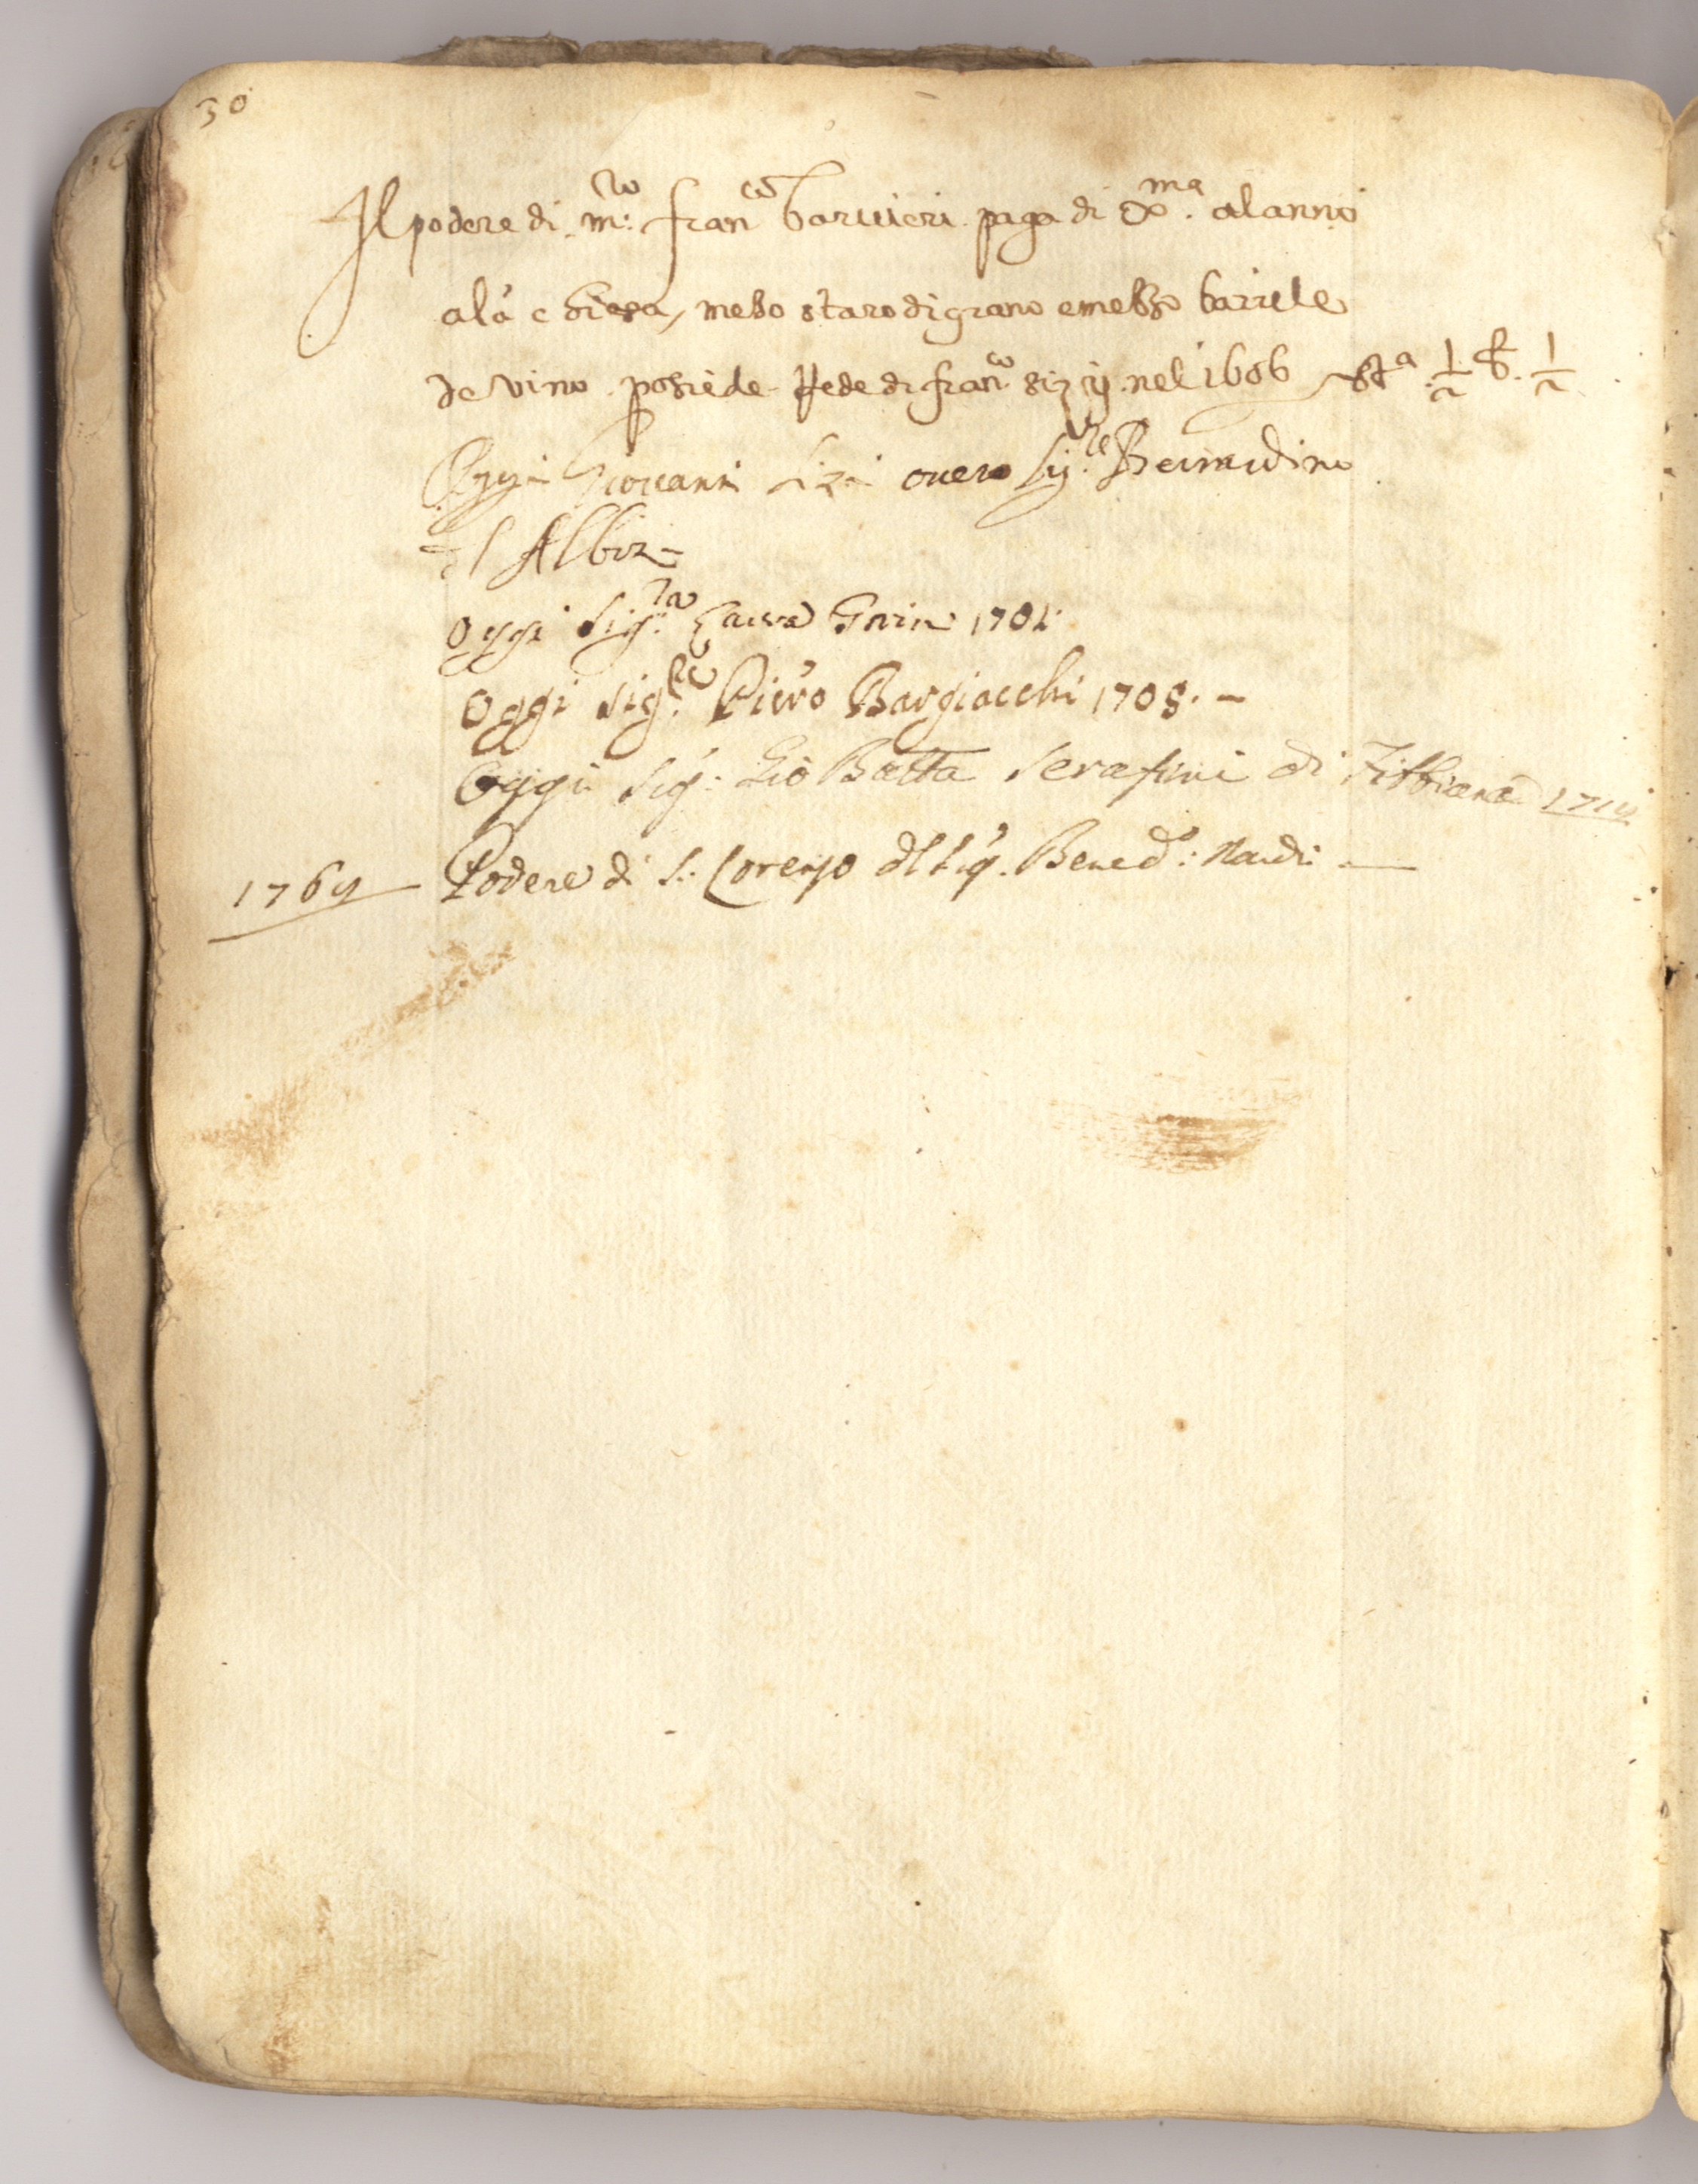 30
Il podere di m:ro fran.co barvieri paga di Xma al anno
ala chiesa mezo staro di grano e mezzo barrile
de vino possiede rede di fran.co sizij nel 1606 sta 1/2 b. 1/2
Oggi Giovanni Sizi overo Sig.re Bernardino
Albiz
oggi Sig.ra 170
oggi sig.re Piero Bargiacchi 1708. –
Oggi Sig: Gio Batta Serafini di Fibbiana
1769 – Podere di S. Lorenzo dl Sig. Bened.o: Nardi —